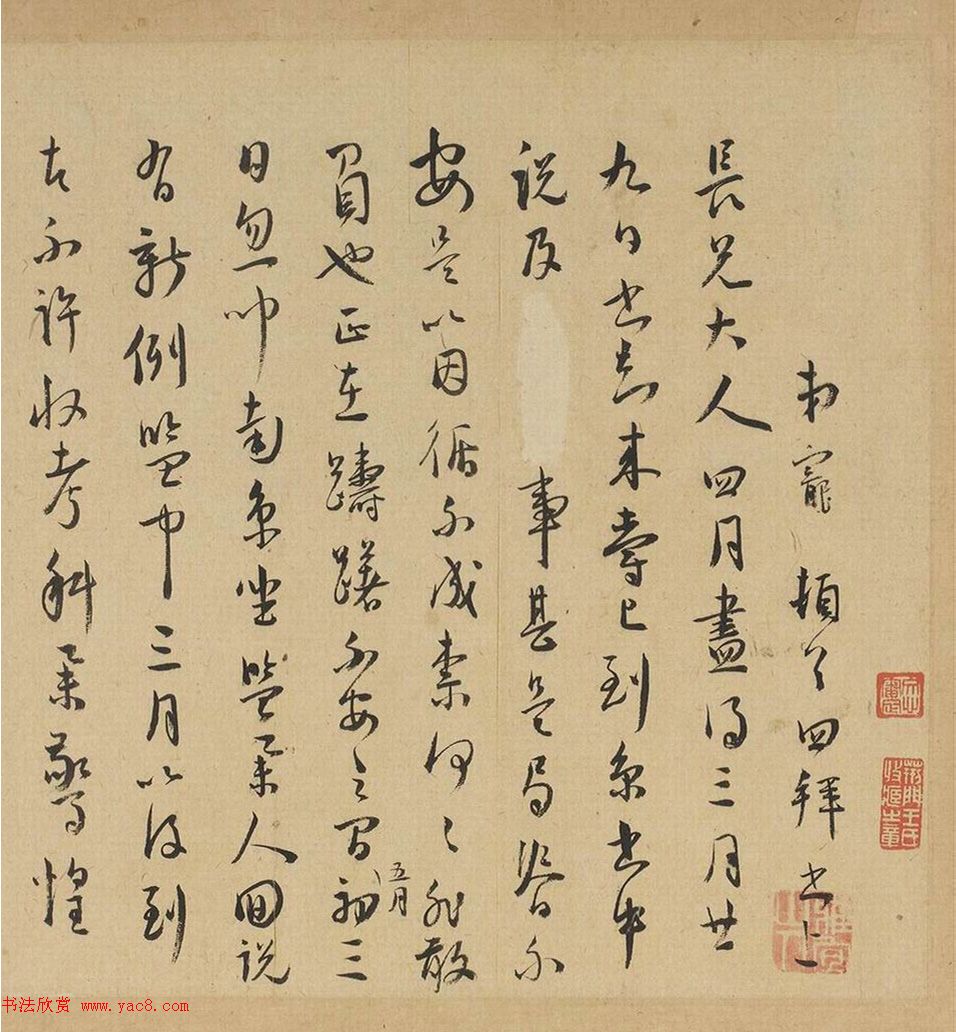 弟寵頓首四拜書上
長兄大人四月盡得三月廿
九日書知來壽已到京書中
說及 事甚是局蹐不
安是以因循不成奈何々非敢
也正在躊躇不安之間五月初三
日忽一南京坐監舉人回說
有新例監中三月以後到
者不許收考科舉驚惶
书法欣赏 www.yac8.com